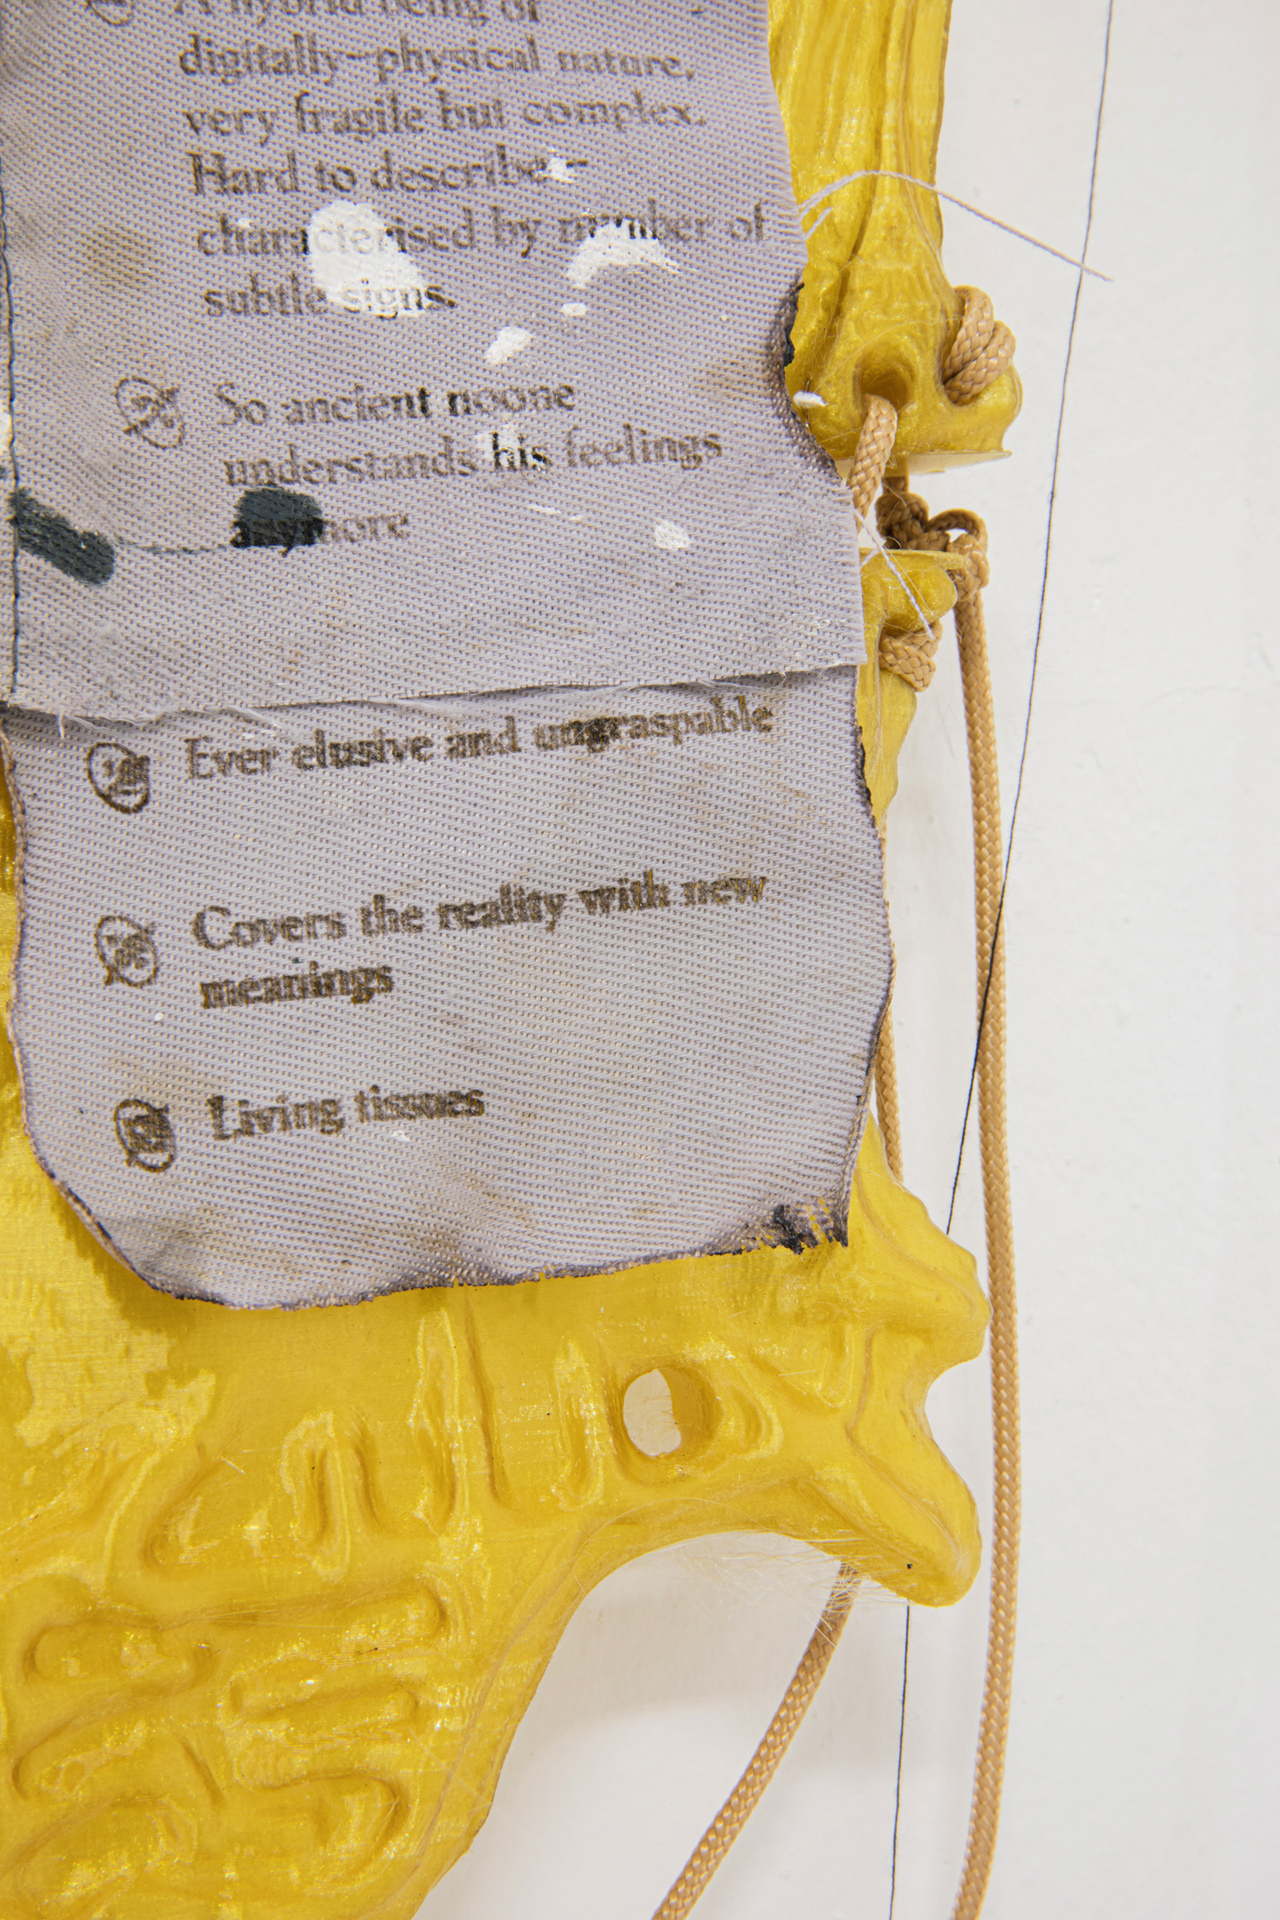 A hybrid being of
digitally-physical nature,
very fragile but complex.
Hard to describe –
characterised by number of
subtle signs.
So ancient noone
understands his feelings
anymore
Ever elusive and ungraspable
Covers the reality with new
meanings
Living tissues